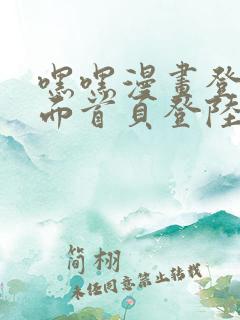 嘿嘿漫畫登
面首頁登陸
简栩
未经同意禁止转载